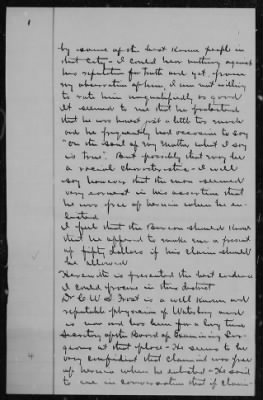 by some of the best known people in
that City - I could hear nothing against
his reputation for truth and yet, from
my observation of him, I am not willing
to rate him unqualifiedly as good
It seemed to me that he protested
that he was honest just a little too much
and he frequently had occasion to say
"On the soul of my mother what I say
is true". But possibly that may be
a racial characteristic - I will
say however that the man seemed
very earnest in his assertions that
he was free of hernia when he en-
listed
I feel that the Bureau should know
that he offered to make me a present
of fifty dollars if his claim should
be allowed
Herewith is presented the best evidence
I could procure in this district
Dr C. W. S. Frost is a well known and
reputable physician of Waterbury and
is now and has been for a long time
Secretary of the Board of Examining Sur-
geons at that place - He seems to be
very confident that claimant was free
of hernia when he enlisted - He said
to me in conversation that if claim-